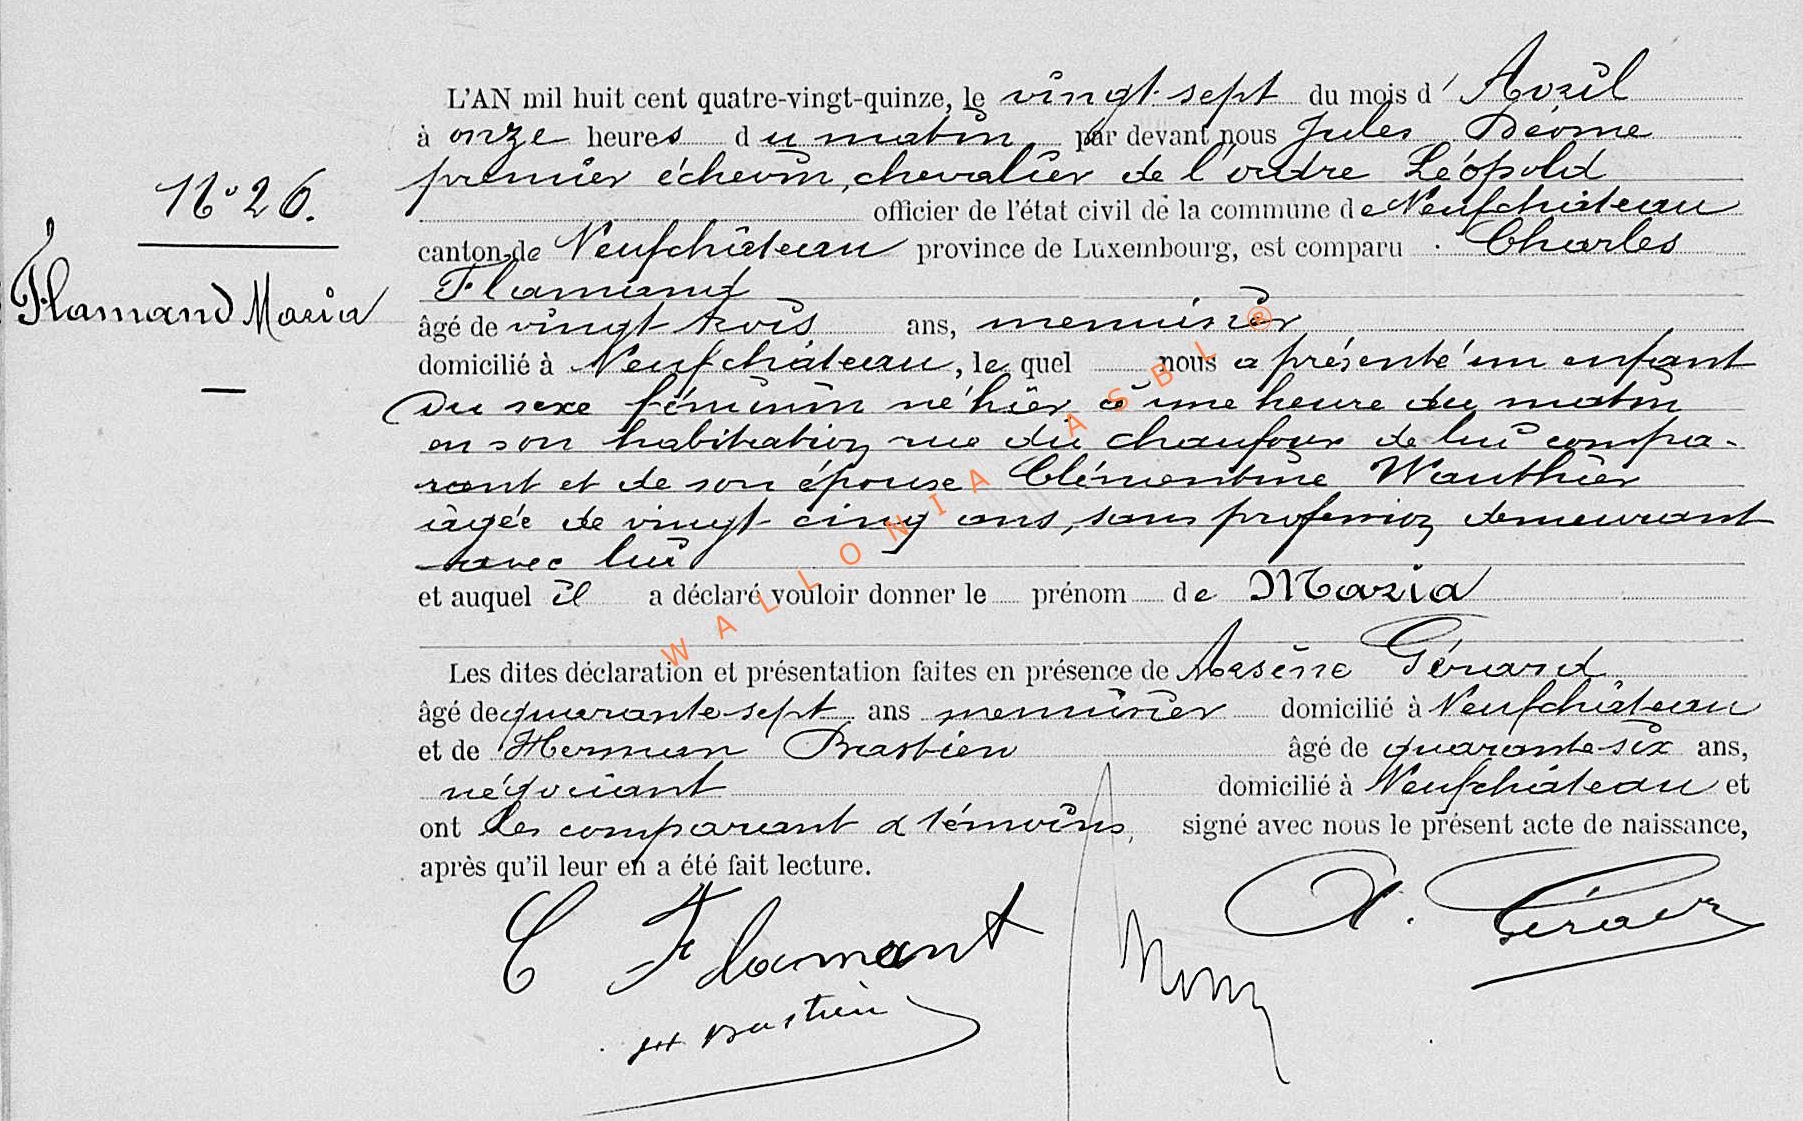 L'AN mil huit cent quatre-vingt-quinze, le vingt-sept du mois d'Avril
à onze heures du matin par devant nous Jules Déome
premier échevin, chevalier de l'ordre Léopold
N° 26.
officier de l'état civil de la commune de Neufchâteau
canton de Neufchâteau province de Luxembourg, est comparu Charles
Flamand
Flamand Maria
âgé de vingt trois ans, menuisier
domicilié à Neufchâteau, lequel nous a présenté un enfant
du sexe féminin né hier à une heure du matin
en son habitation rue du chaufour de lui compa-
rant et de son épouse Clémentine Wauthier
âgée de vingt-cinq ans, sans profession demeurant
avec lui
et auquel il a déclaré vouloir donner le prénom de Maria
Les dites déclaration et présentation faites en présence de Arsène Gérard
âgé de quarante-sept ans menuisier domicilié à Neufchâteau
et de Herman Bastien âgé de quarante-six ans,
négociant domicilié à Neufchâteau et
ont les comparant & témoins, signé avec nous le présent acte de naissance,
après qu'il leur en a été fait lecture.
C Flamant A. Gérard
H Bastien
WALLONIA ASBL ®